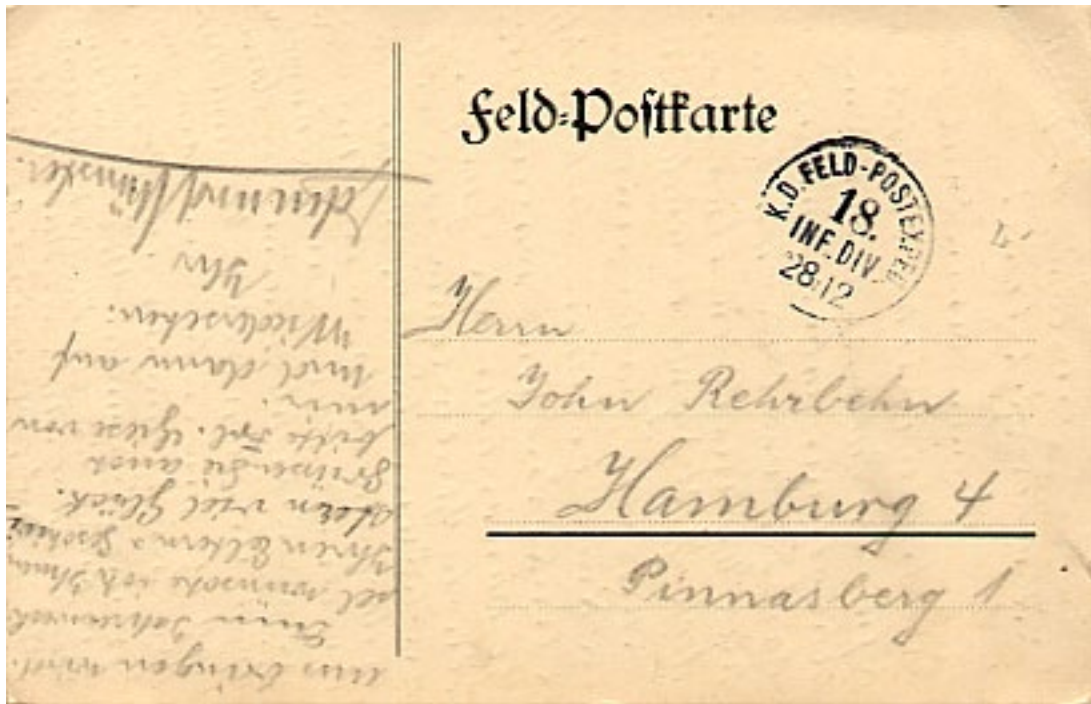 Feld-Postkarte
K.D. FELD-POSTEXPED.
18.
INF. DIV.
28.12
Herrn
John Rehrbehn
Hamburg 4
Pinnasberg 1
uns bringen wird.
Zum Jahreswech
sel wünsche ich Ihnen
Ihren Eltern &
viel Glück.
Grüssen Sie auch
bitte Frl. von
mir.
Und dann auf
Wiedersehen.
Ihr